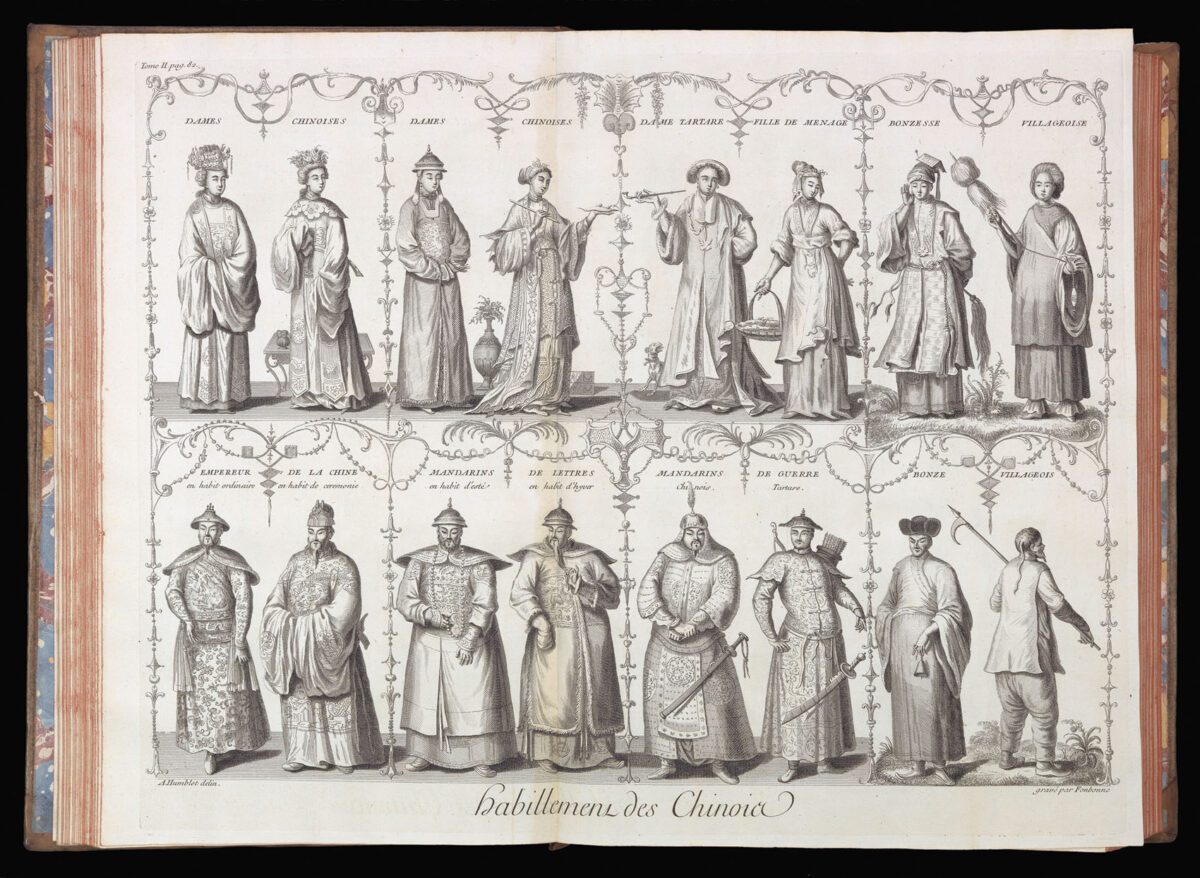 Tome II pag. 82.
DAMES CHINOISES DAMES CHINOISES DAME TARTARE FILLE DE MENAGE BONZESSE VILLAGEOISE
EMPEREUR DE LA CHINE MANDARINS DE LETTRES MANDARINS DE GUERRE BONZE VILLAGEOIS
en habit ordinaire en habit de ceremonie en habit d'esté en habit d'hyver Chinois. Tartare.
A. Humblot delin. gravé par Fonbonne
habillement des Chinois